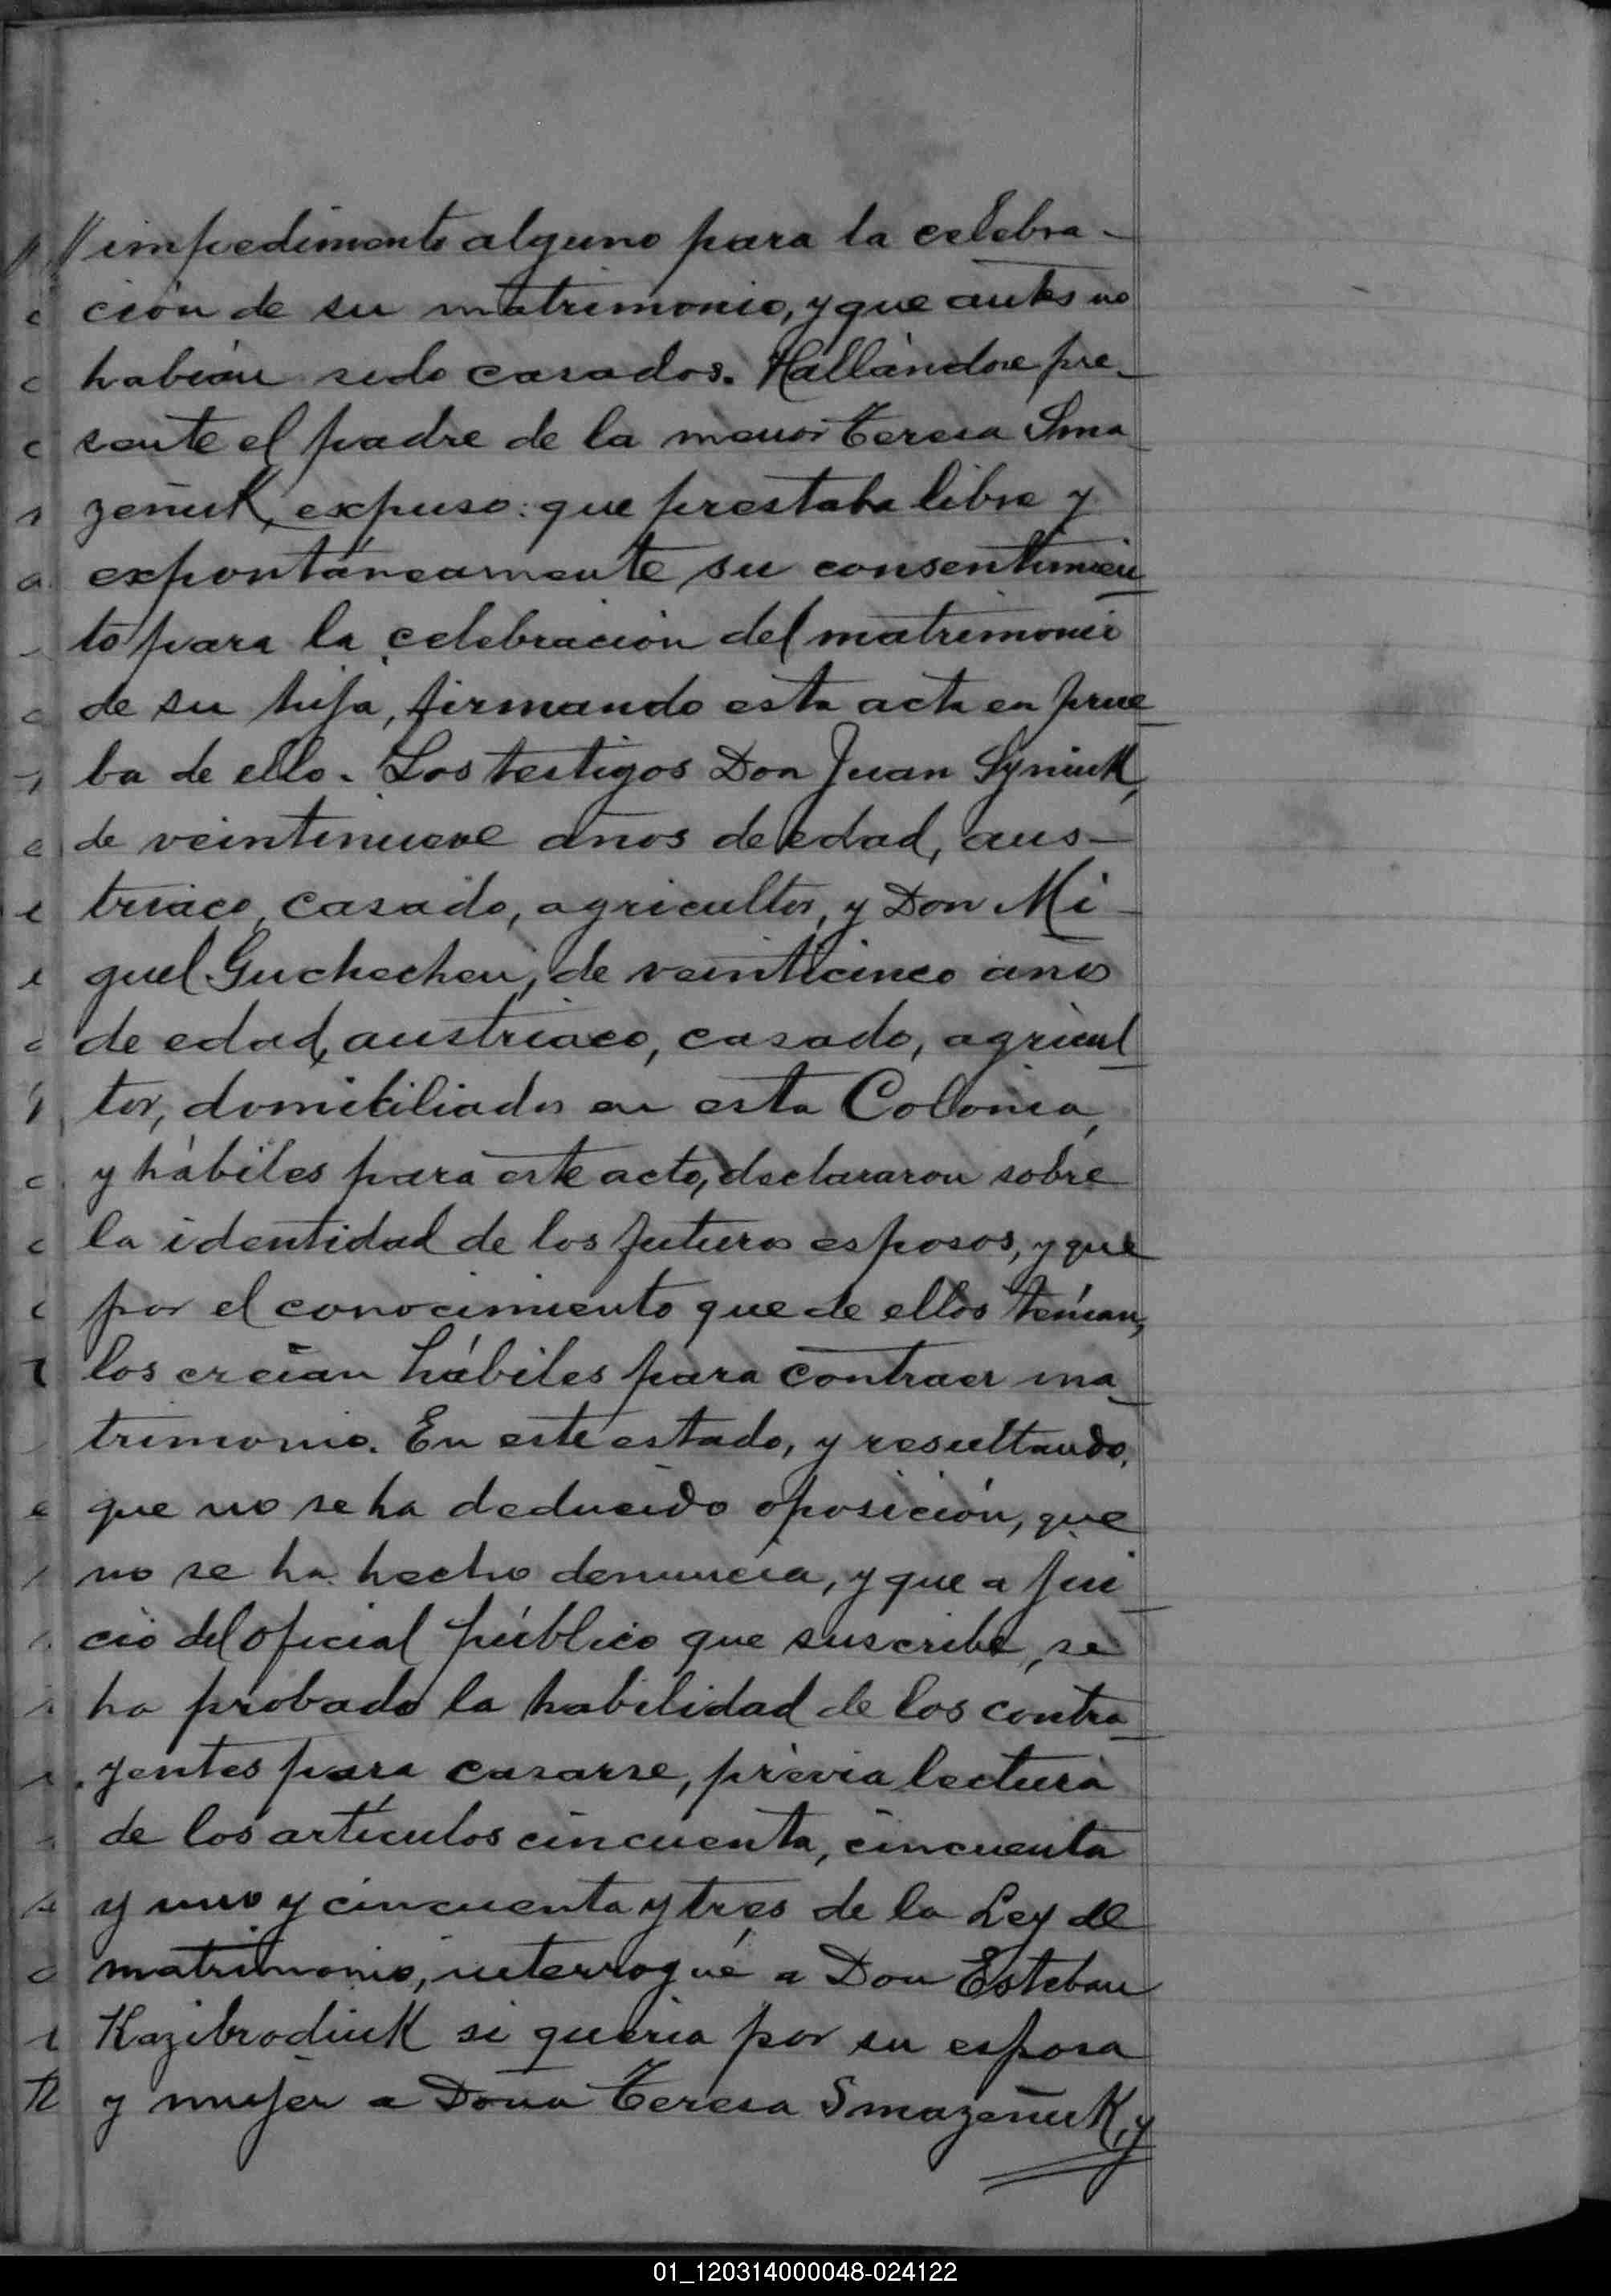 // impedimento alguno para la celebra-
ción de su matrimonio, y que antes no
habían sido casados. Hallándose pre-
sente el padre de la menor Teresa Sma
zeñuk, expuso: que prestaba libre y
expontáneamente su consentimien
to para la celebración del matrimonio
de su hija, firmando esta acta en prue
ba de ello. Los testigos Don Juan Syniuk,
de veintinueve años de edad, aus-
triaco, casado, agricultor, y Don Mi-
guel Guchechen, de veinticinco años
de edad, austriaco, casado, agricul
tor, domiciliados en esta Colonia,
y hábiles para este acto, declararon sobre
la identidad de los futuros esposos, y que
por el conocimiento que de ellos tenían,
los creían hábiles para contraer ma-
trimonio. En este estado, y resultando,
que no se ha deducido oposición, que
no se ha hecho denuncia, y que a jui
cio del oficial público que suscribe, se
ha probado la habilidad de los contra
yentes para casarse, previa lectura
de los artículos cincuenta, cincuenta
y uno y cincuenta y tres de la Ley de
matrimonio, interrogué a Don Esteban
Kazibrodiuk si quería por su esposa
y mujer a Doña Teresa Smazeñuk, y
01_120314000048-024122